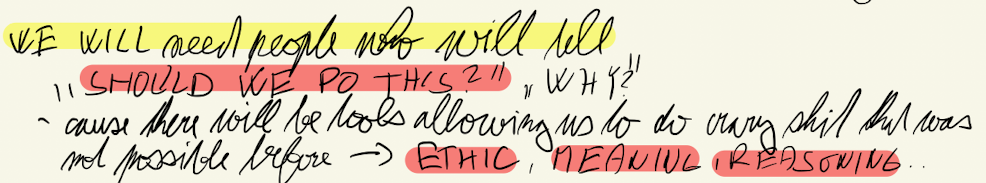 WE WILL need people who will tell
"SHOULD WE DO THIS?" "WHY?"
~ cause there will be tools allowing us to do crazy shit that was
not possible before → ETHIC, MEANING, REASONING..